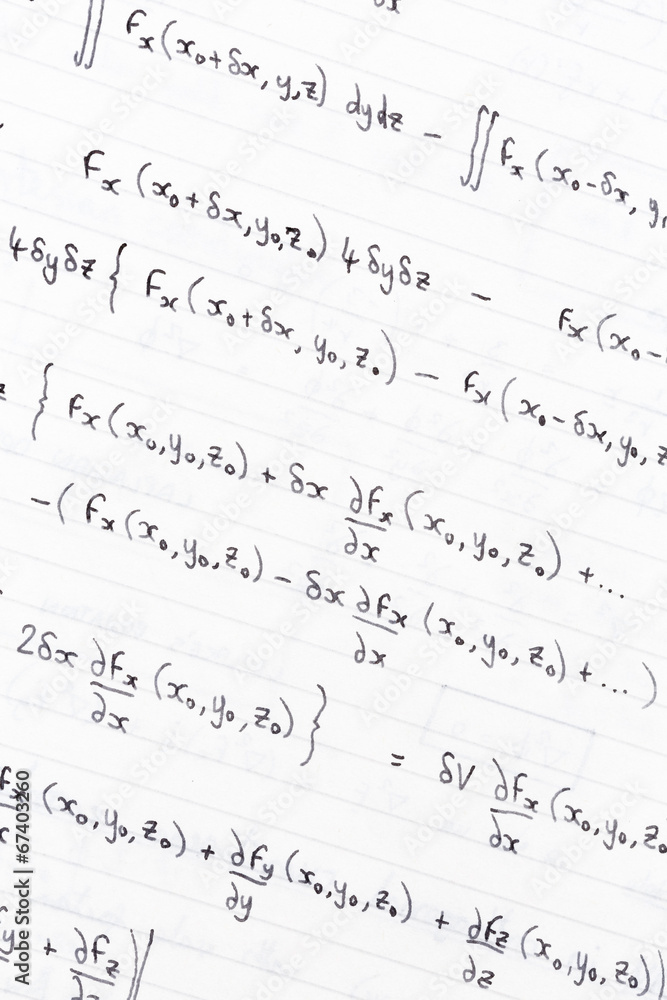 ∬ Fx(x₀+δx, y, z) dydz − ∬ Fx(x₀−δx, y,
Fx (x₀+δx, y₀, z₀) 4δyδz − Fx(x₀−
4δyδz { Fx(x₀+δx, y₀, z₀) − Fx(x₀−δx, y₀, z
{ Fx(x₀, y₀, z₀) + δx ∂Fx/∂x (x₀, y₀, z₀) + ...
−( Fx(x₀, y₀, z₀) − δx ∂Fx/∂x (x₀, y₀, z₀) + ... )
2δx ∂Fx/∂x (x₀, y₀, z₀) } = δV ∂Fx/∂x (x₀, y₀, z₀
(x₀, y₀, z₀) + ∂Fy/∂y (x₀, y₀, z₀) + ∂Fz/∂z (x₀, y₀, z₀))
+ ∂Fz
Adobe Stock | #67403260